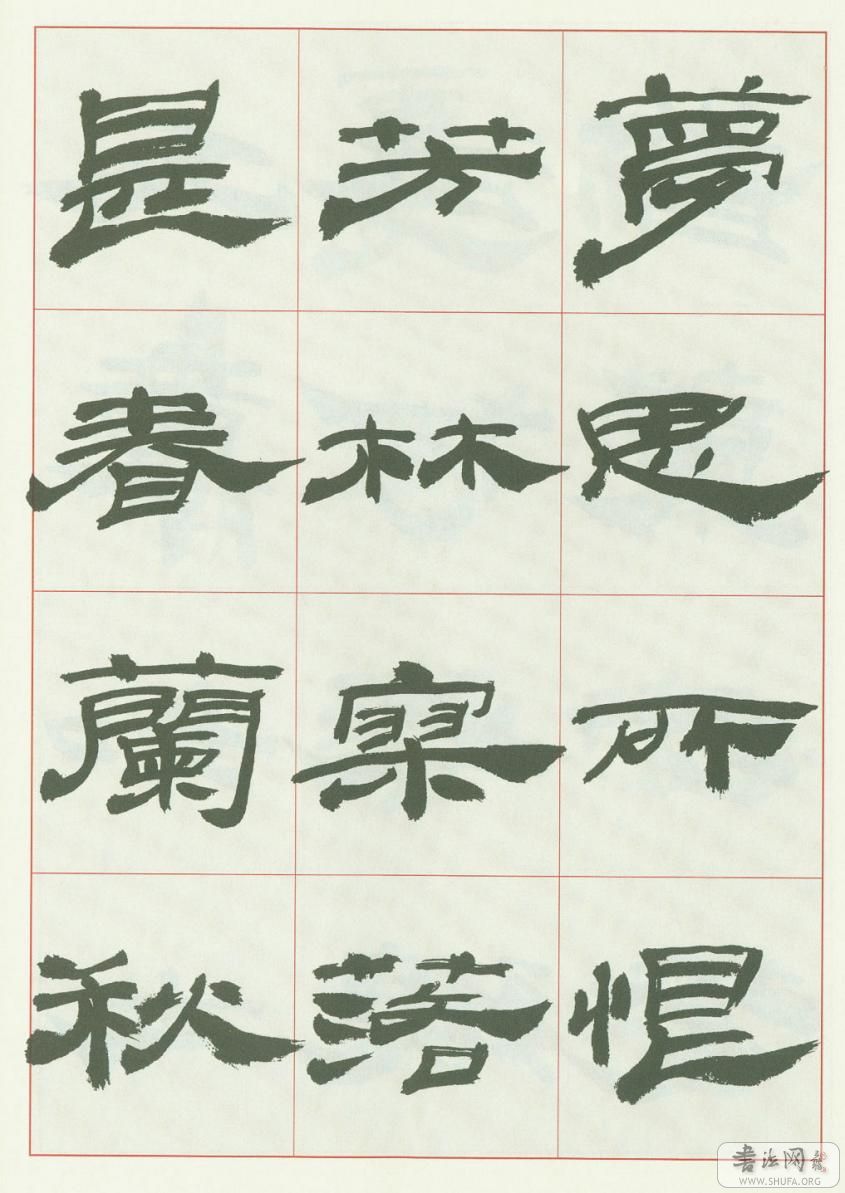 夢思所恨
芳林寥落
是春蘭秋
書法网
WWW.SHUFA.ORG